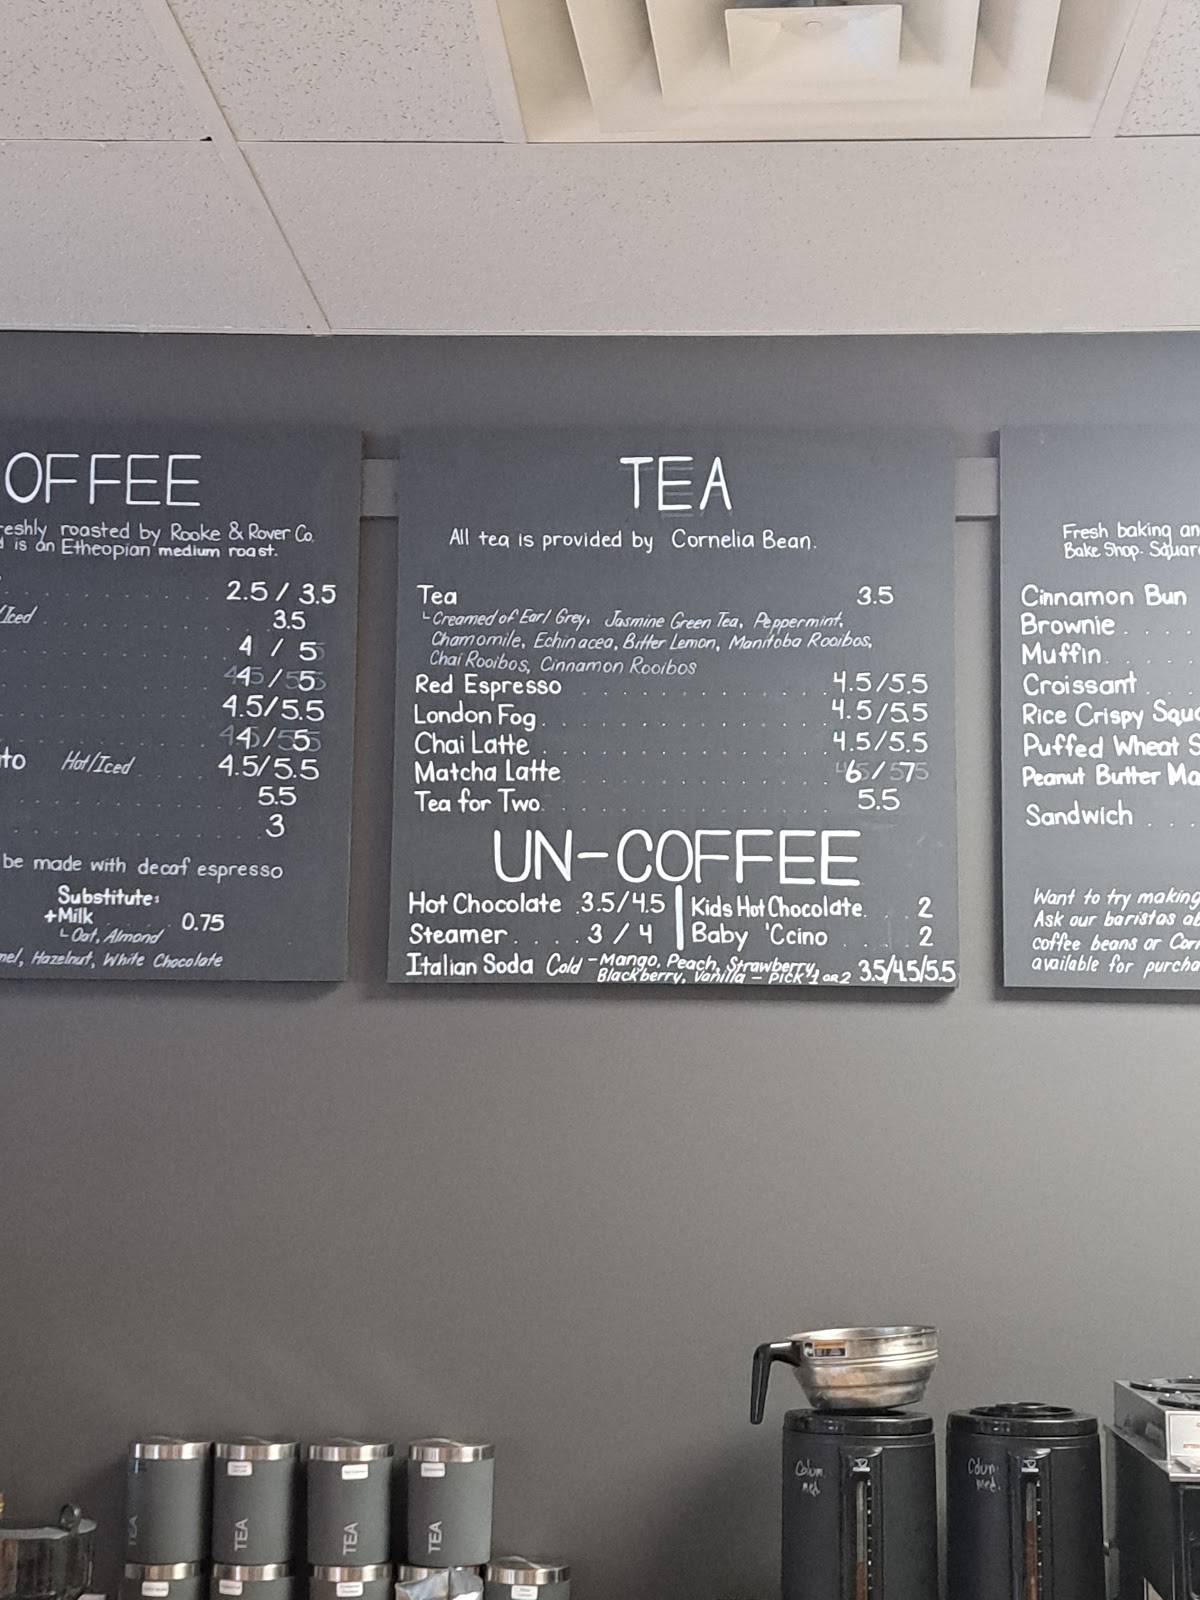 OFFEE
roasted by Rooke & Rover Co.
is an Etheopian medium roast.
2.5 / 3.5
Iced 3.5
4 / 5
45 / 55
4.5/5.5
45 / 55
Hot/Iced 4.5/5.5
5.5
3
be made with decaf espresso
Substitute:
+Milk 0.75
Oat, Almond
Hazelnut, White Chocolate
TEA
All tea is provided by Cornelia Bean.
Tea 3.5
Creamed of Earl Grey, Jasmine Green Tea, Peppermint,
Chamomile, Echinacea, Bitter Lemon, Manitoba Rooibos,
Chai Rooibos, Cinnamon Rooibos
Red Espresso 4.5/5.5
London Fog 4.5/5.5
Chai Latte 4.5/5.5
Matcha Latte 6 / 7
Tea for Two 5.5
UN-COFFEE
Hot Chocolate 3.5/4.5
Steamer 3 / 4
Kids Hot Chocolate 2
Baby 'Ccino 2
Italian Soda Cold - Mango, Peach, Strawberry,
Blackberry, Vanilla - Pick 1 or 2 3.5/4.5/5.5
Fresh baking
Bake Shop.
Cinnamon Bun
Brownie
Muffin
Croissant
Rice Crispy
Puffed Wheat
Peanut Butter
Sandwich
Want to try making
Ask our baristas
coffee beans or
available for
TEA
TEA
TEA
TEA